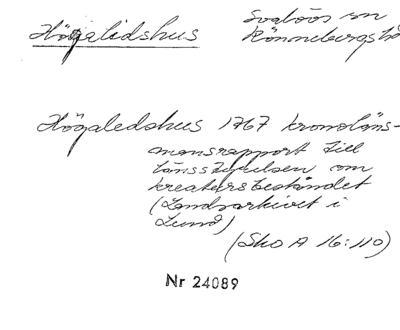 Högalidshus
Svalövs sn
Rönnebergs hd
Högaledshus 1767 kronoläns-
mansrapport till
länsstyrelsen om
kreatursbeståndet
(Landsarkivet i
Lund)
(Sko A 16:110)
Nr 24089